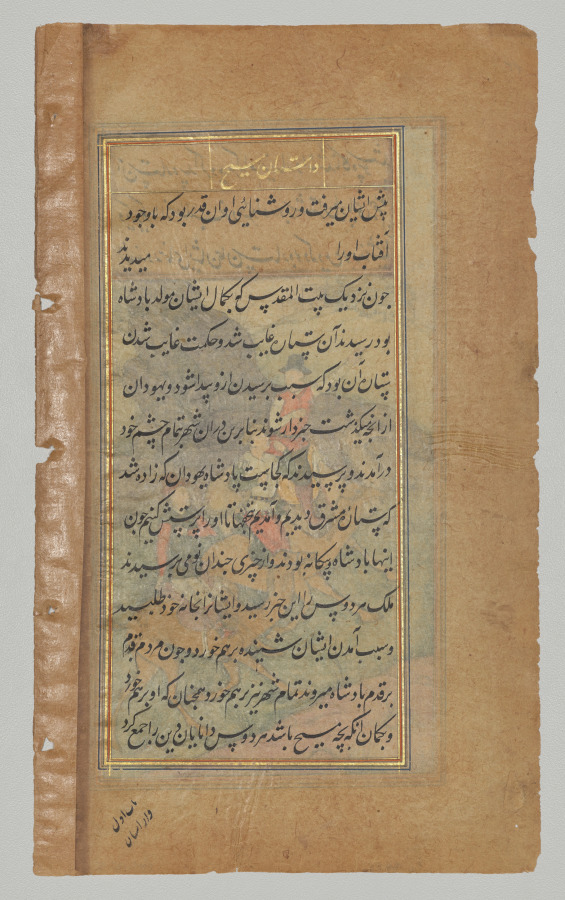 داستان مسیح
پیش ایشان میرفت و روشنائی او ان قدر بود که باوجود
آفتاب او را میدیدند
چون نزدیک بیت المقدس که بکمال ایشان مولد بادشاه
بود رسیدند آن ستاره غایب شد و حکمت غایب شدن
ستاره آن بود که بسبب پرسیدن ازو پیدا شود و یهودان
از آنچه میگذشت خبردار شوند بنابرین دران شهر بتمام چشم خود
درآمدند و پرسیدند که کجاست پادشاه یهودان که زاده شد
که ستاره مشرق دیدیم و آمدیم تا او را پرستش کنیم چون
اینها بادشاه بیگانه بودند و از چیزی چندان نو می پرسیدند
ملک هردوس را این خبر رسید و ایشانرا بخانه خود طلبید
و سبب آمدن ایشان شنیده برهم خورد و چون مردم قدم
بر قدم بادشاه میروند تمام شهر نیز برهم خورد همچنان که او برهم خورد
و بگمان آنکه بچه مسیح باشد هردوس دانایان دین را جمع کرد